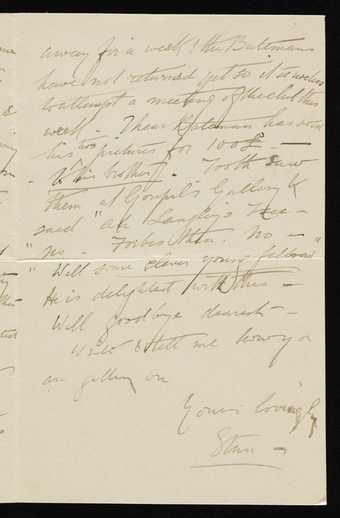 away for a week! the Batemans
have not returned yet so it is useless
to attempt a meeting of the club this
week - I hear Bateman has sold
his two pictures for 100£ -
- To his brother! - Tooth saw
them at Goupil's Gallery &
said "Ah Langley's I see -
"No - Forbes then. No -
"Well some clever young fellows"
He is delighted with this -
Well goodbye dearest -
Write & tell me how you
are getting on
Yours lovingly
Stan -